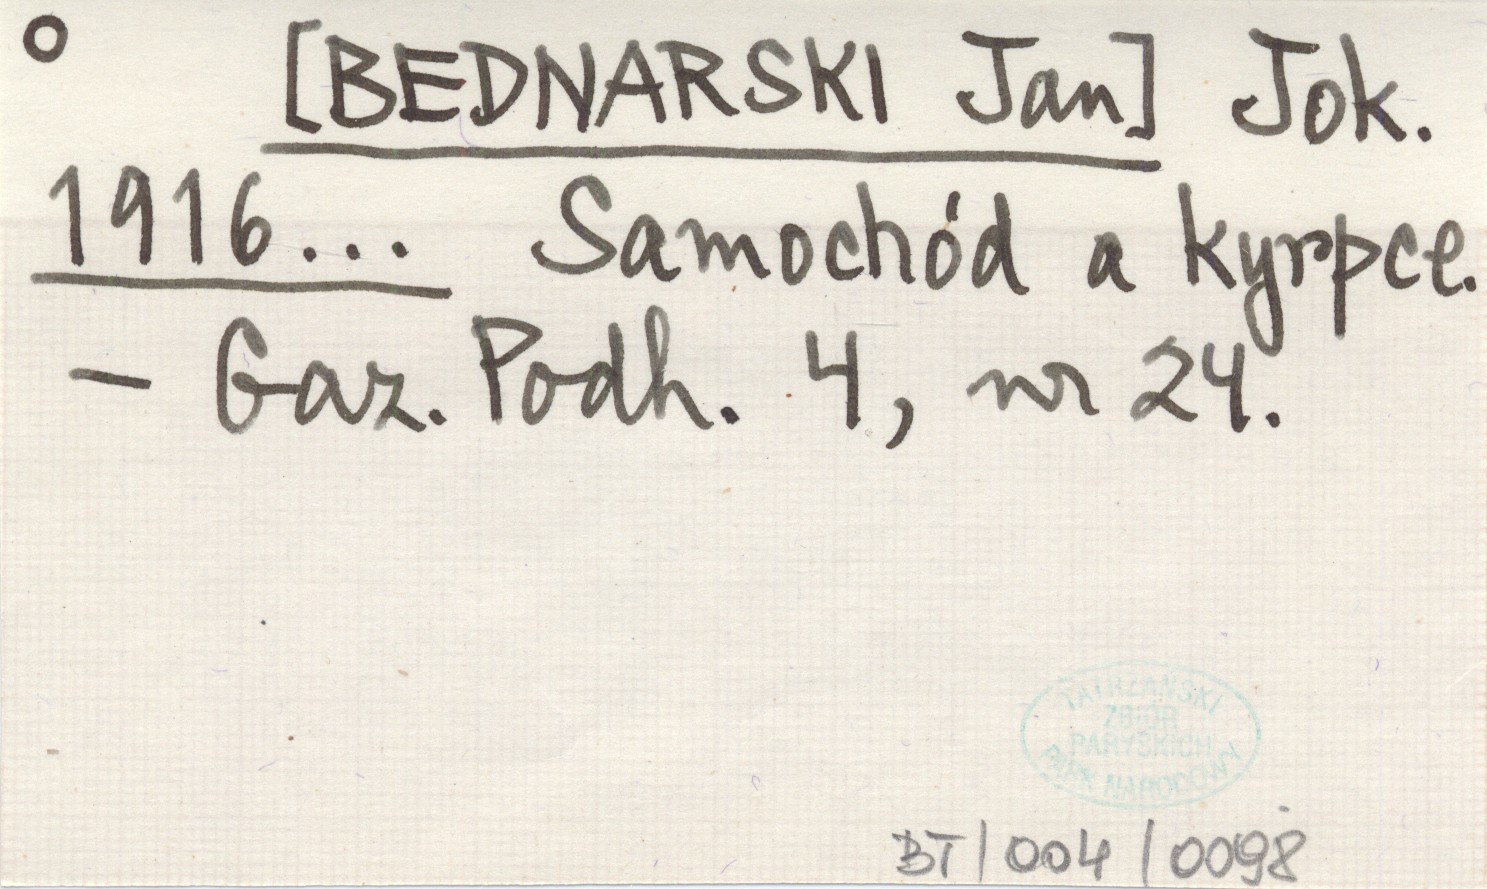 [BEDNARSKI Jan] Jok.
1916... Samochód a kyrpce.
- Gaz. Podh. 4, nr 24.
TATRZAŃSKI
ZBIÓR
PARYSKICH
PARK NARODOWY
BT/004/0098